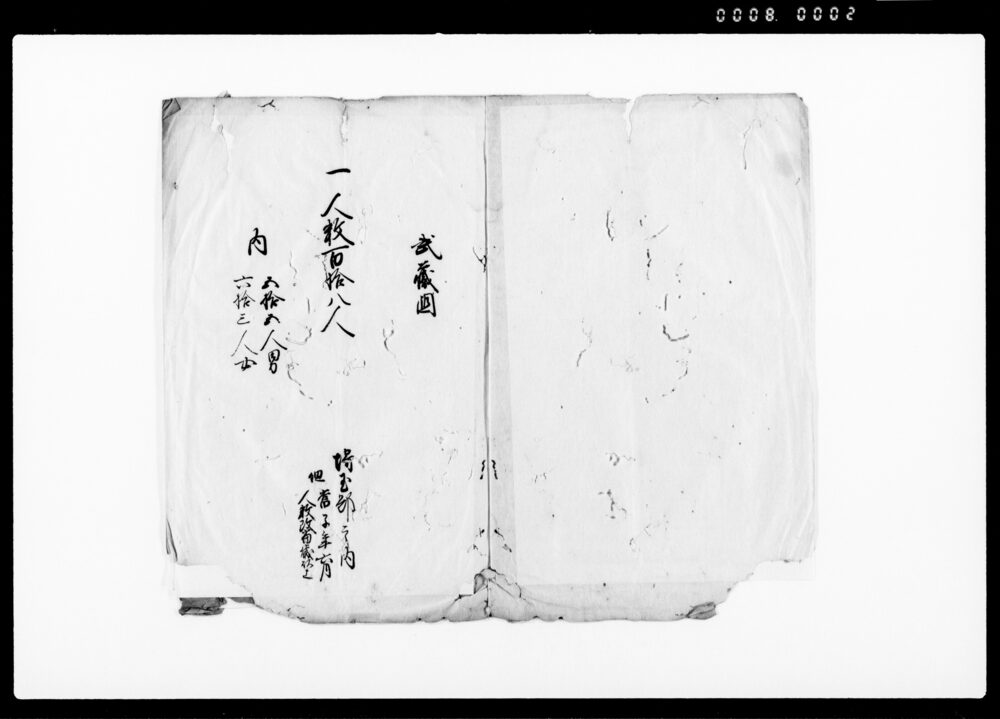 0008. 0002
武蔵国
一人数百拾八人
埼玉郡之内
但当子年六月
人数改
内
五拾五人男
六拾三人女